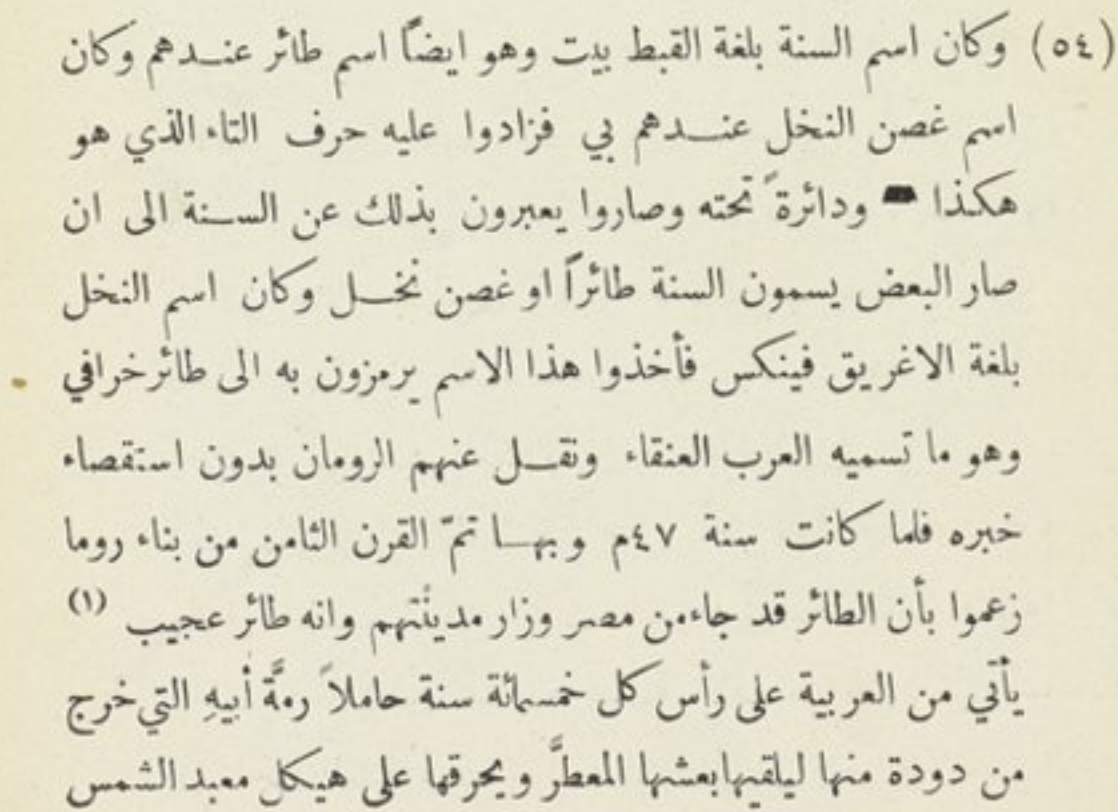 (٥٤) وكان اسم السنة بلغة القبط بيت وهو ايضاً اسم طائر عندهم وكان
اسم غصن النخل عندهم بي فزادوا عليه حرف التاء الذي هو
هكذا ودائرةً تحته وصاروا يعبرون بذلك عن السنة الى ان
صار البعض يسمون السنة طائراً او غصن نخل وكان اسم النخل
بلغة الاغريق فينكس فأخذوا هذا الاسم يرمزون به الى طائر خرافي
وهو ما تسميه العرب العنقاء ونقل عنهم الرومان بدون استقصاء
خبره فلما كانت سنة ٤٧م وبها تمّ القرن الثامن من بناء روما
زعموا بأن الطائر قد جاء من مصر وزار مدينتهم وانه طائر عجيب (١)
يأتي من العربية على رأس كل خمسمائة سنة حاملاً رمَّة أبيهِ التي خرج
من دودة منها ليلقيها بعشها المعطرَّ ويحرقها على هيكل معبد الشمس